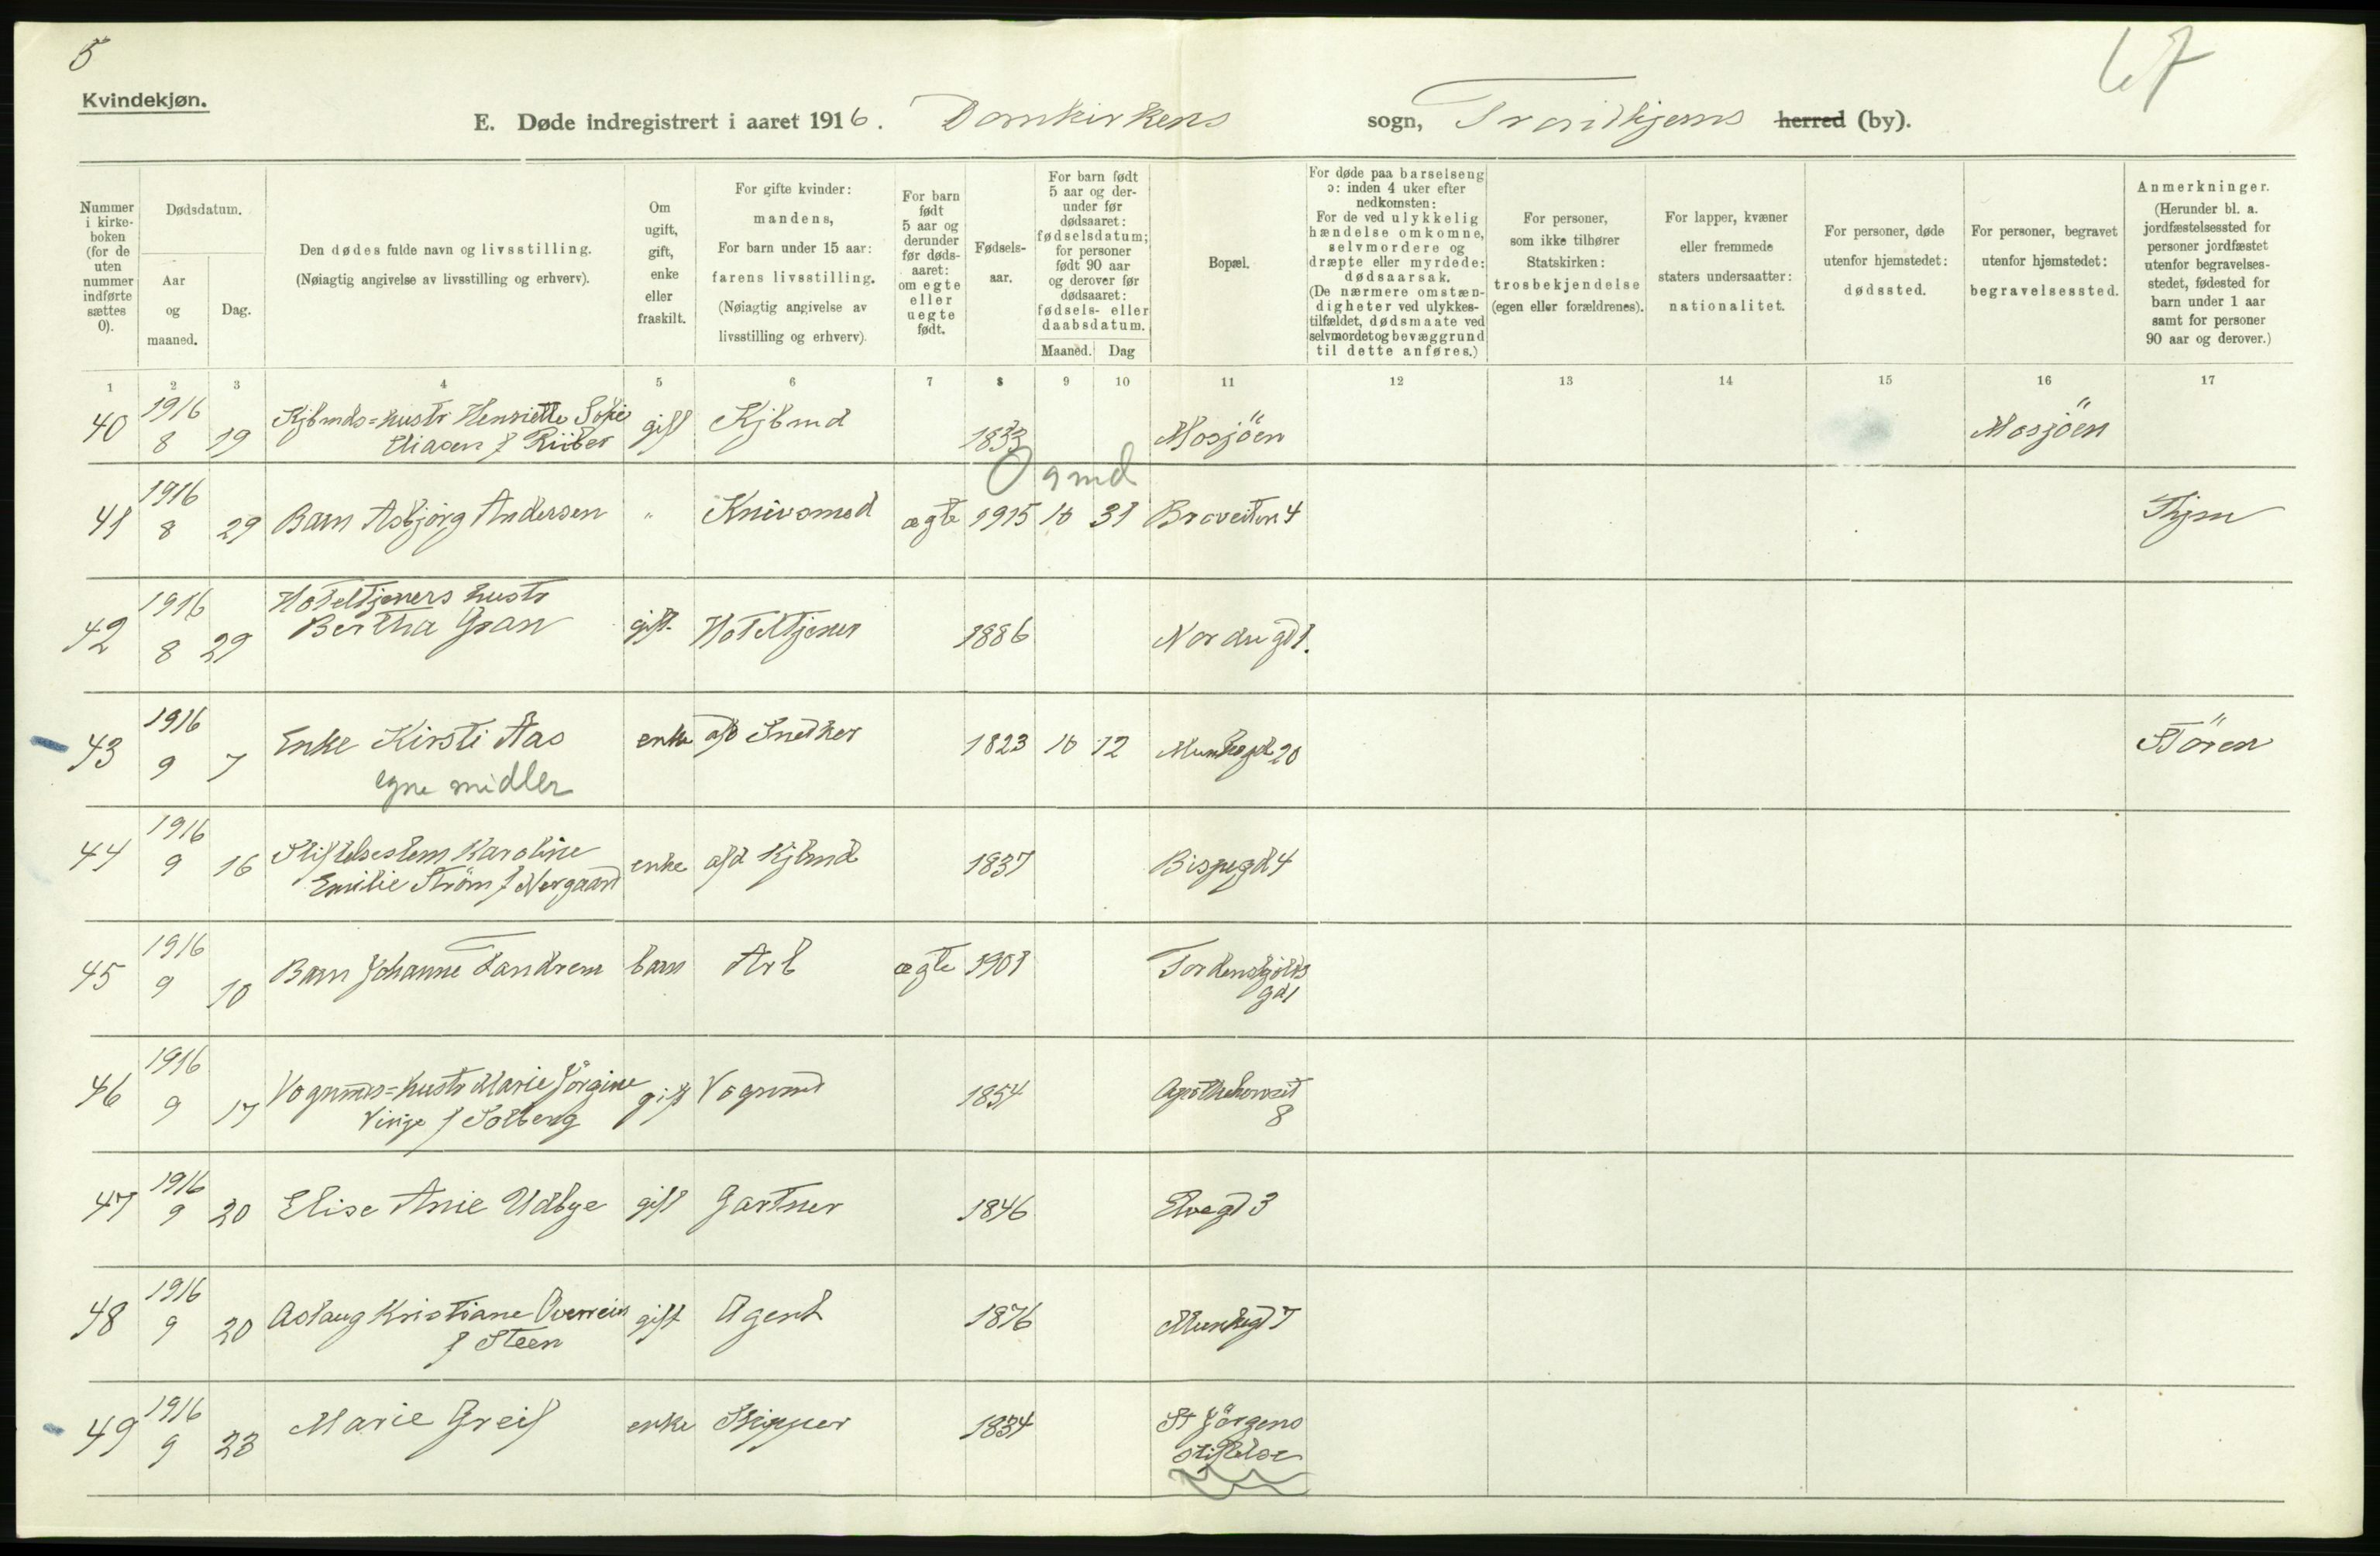 5
67
Kvindekjøn.
E. Døde indregistrert i aaret 1916. Domkirkens sogn, Trondhjems herred (by).
Nummer i kirke-boken (for de uten nummer indførte sættes 0).
Dødsdatum.
Aar og maaned.
Dag.
Den dødes fulde navn og livsstilling.
(Nøiagtig angivelse av livsstilling og erhverv).
Om ugift, gift, enke eller fraskilt.
For gifte kvinder: mandens,
For barn under 15 aar: farens livsstilling.
(Nøiagtig angivelse av livsstilling og erhverv).
For barn født 5 aar og derunder før døds-aaret: om egte eller uegte født.
Fødsels-aar.
For barn født 5 aar og der-under før dødsaaret: fødselsdatum; for personer født 90 aar og derover før dødsaaret: fødsels- eller daabsdatum.
Maaned.
Dag
Bopæl.
For døde paa barselseng ɔ: inden 4 uker efter nedkomsten:
For de ved ulykkelig hændelse omkomne, selvmordere og dræpte eller myrdede: dødsaarsak.
(De nærmere omstæn-digheter ved ulykkes-tilfældet, dødsmaate ved selvmordet og bevæggrund til dette anføres.)
For personer, som ikke tilhører Statskirken: trosbekjendelse (egen eller forældrenes).
For lapper, kvæner eller fremmede staters undersaatter: nationalitet.
For personer, døde utenfor hjemstedet: dødssted.
For personer, begravet utenfor hjemstedet: begravelsessted.
Anmerkninger.
(Herunder bl. a. jordfæstelsessted for personer jordfæstet utenfor begravelses-stedet, fødested for barn under 1 aar samt for personer 90 aar og derover.)
1 2 3 4 5 6 7 8 9 10 11 12 13 14 15 16 17
40 1916 8 19 Kjbmds=hustr Henriette Sofie gift Kjbmd 1833 Mosjöen Mosjöen
Eliasen f Riiber
0 9 md
41 1916 8 29 Barn Asbjörg Andersen " Knivsmed ægte 1915 10 31 Braveiten 4 Thjm
42 1916 8 29 Hoteltjeners hustr
Bertha Gran gift. Hoteltjener 1886 Nordregd 1.
43 1916 9 7 Enke Kirsti Aas enke afd Snedker 1823 10 12 Munkegd 20 Stören
egne midler
44 1916 9 16 Stiftelseslem Karoline enke afd Kjbmd 1837 Bispegd 4
Emilie Ström f Norgaard
45 1916 9 10 Barn Johanne Tandrem barn Arb ægte 1901 Tordenskjolds
gd 1
46 1916 9 17 Vognmds=hustr Marie Jörgine gift Vognmd 1854 Apothekerveit
Vinje f Solberg 8
47 1916 9 20 Elise Anie Udbye gift Gartner 1846 Elvegd 3
48 1916 9 20 Aslaug Kristiane Overrein gift Agent 1876 Munkegd 7
f Steen
49 1916 9 23 Marie Greif enke Skipper 1834 St Jörgens
stiftelse